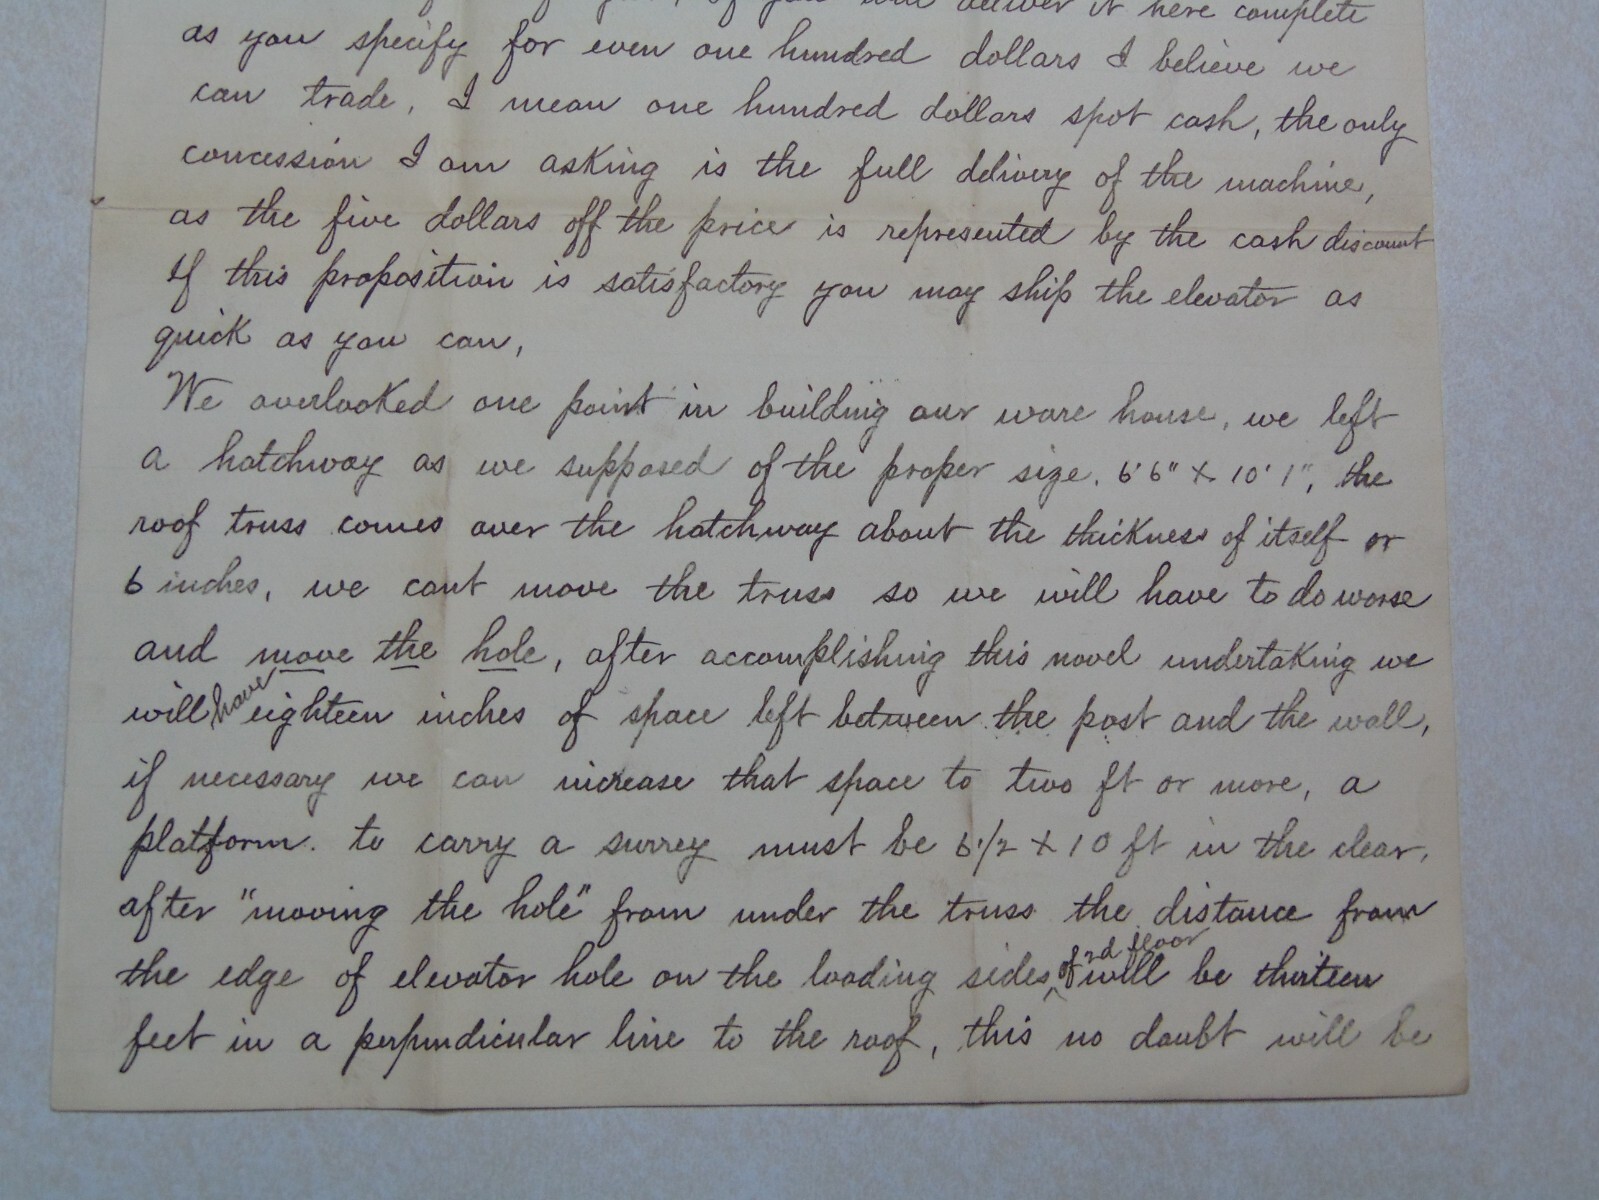 you will deliver it here complete
as you specify for even one hundred dollars I believe we
can trade, I mean one hundred dollars spot cash, the only
concession I am asking is the full delivery of the machine,
as the five dollars off the price is represented by the cash discount
If this proposition is satisfactory you may ship the elevator as
quick as you can,
We overlooked one point in building our ware house, we left
a hatchway as we supposed of the proper size. 6' 6" x 10' 1", the
roof truss comes over the hatchway about the thickness of itself or
6 inches, we cant move the truss so we will have to do worse
and move the hole, after accomplishing this novel undertaking we
will have eighteen inches of space left between the post and the wall,
if necessary we can increase that space to two ft or more, a
platform. to carry a surrey must be 6 1/2 x 10 ft in the clear,
after "moving the hole" from under the truss the distance from
the edge of elevator hole on the loading sides of 2nd floor will be thirteen
feet in a perpendicular line to the roof, this no doubt will be